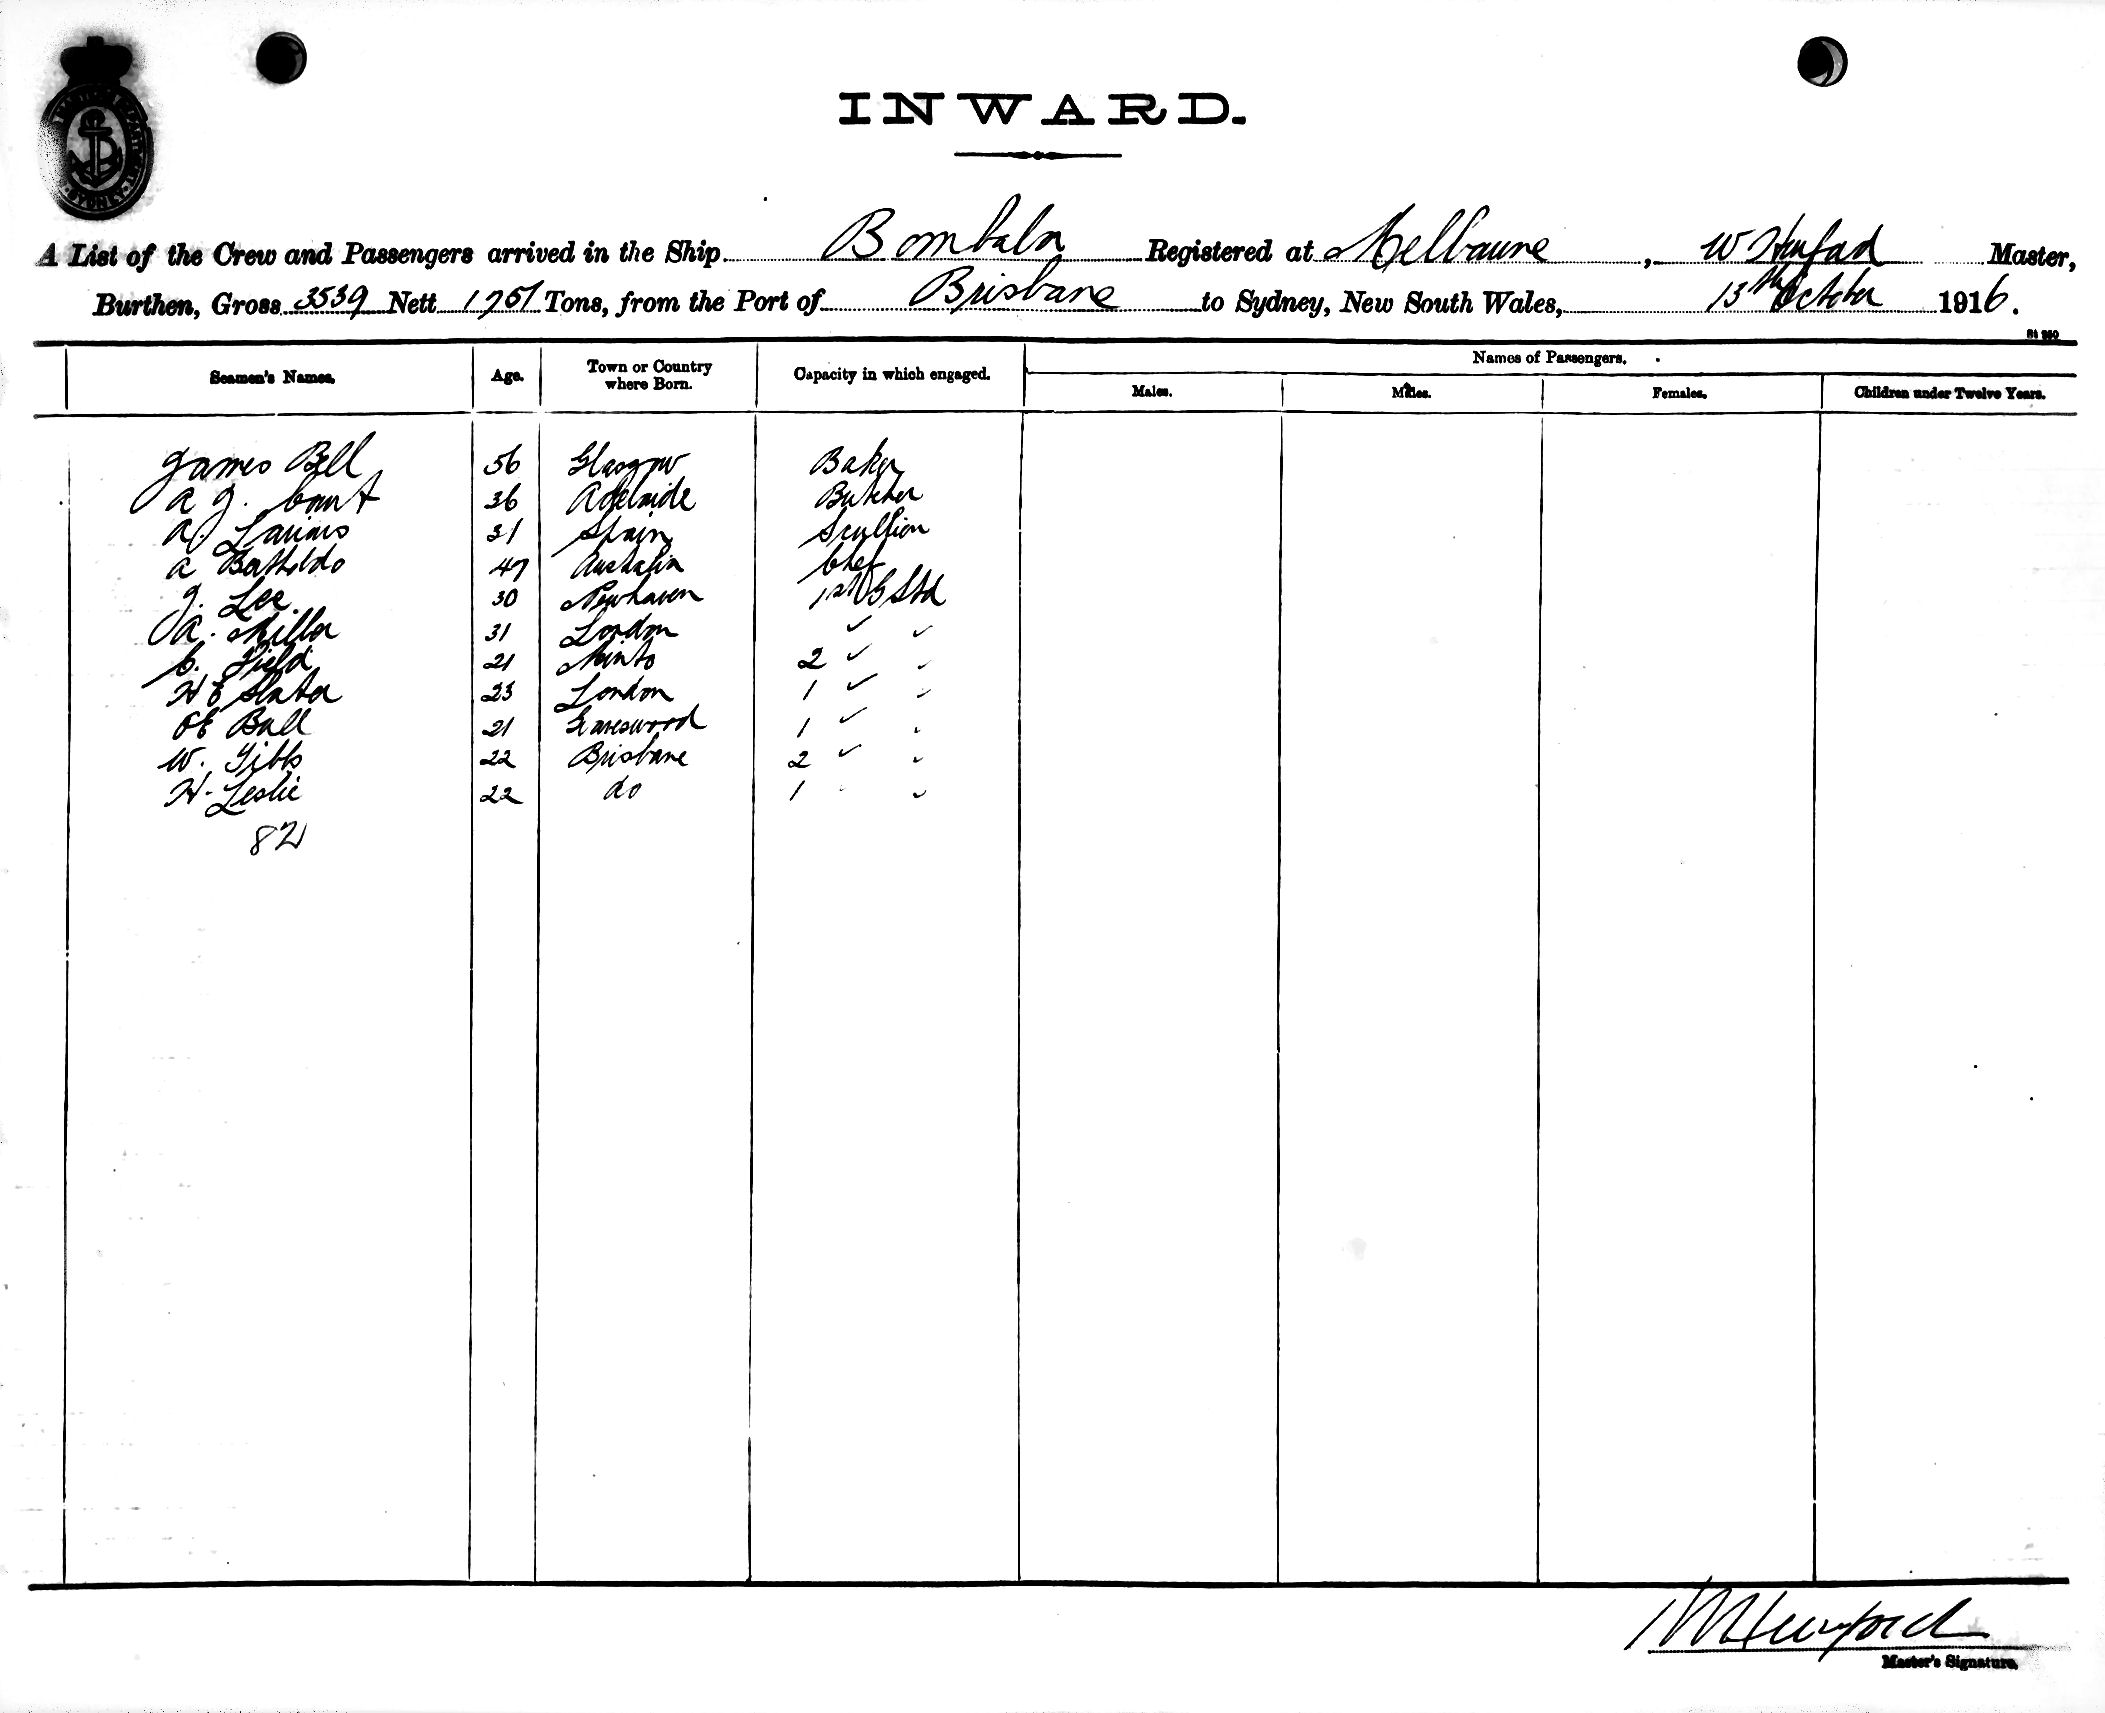 INWARD.
A List of the Crew and Passengers arrived in the Ship Bombala Registered at Melbourne, W Hurford Master,
Burthen, Gross 3539 Nett 1761 Tons, from the Port of Brisbane to Sydney, New South Wales, 13th October 1916.
Seamen's Names. Age. Town or Country where Born. Capacity in which engaged. Names of Passengers.
Males. Males. Females. Children under Twelve Years.
James Bell 56 Glasgow Baker
A J. Cant 36 Adelaide Butcher
A. 31 Spain Scullion
A 47 Australia Chef
J. Lee 30 Newhaven 1st G Std
A. Miller 31 London
C. Field 21 Minto 2
H E Slater 23 London 1
Ball 21 1
W. Gibbs 22 Brisbane 2
H. Leslie 22 do 1
82
W Hurford
Master's Signature.
SYDNEY